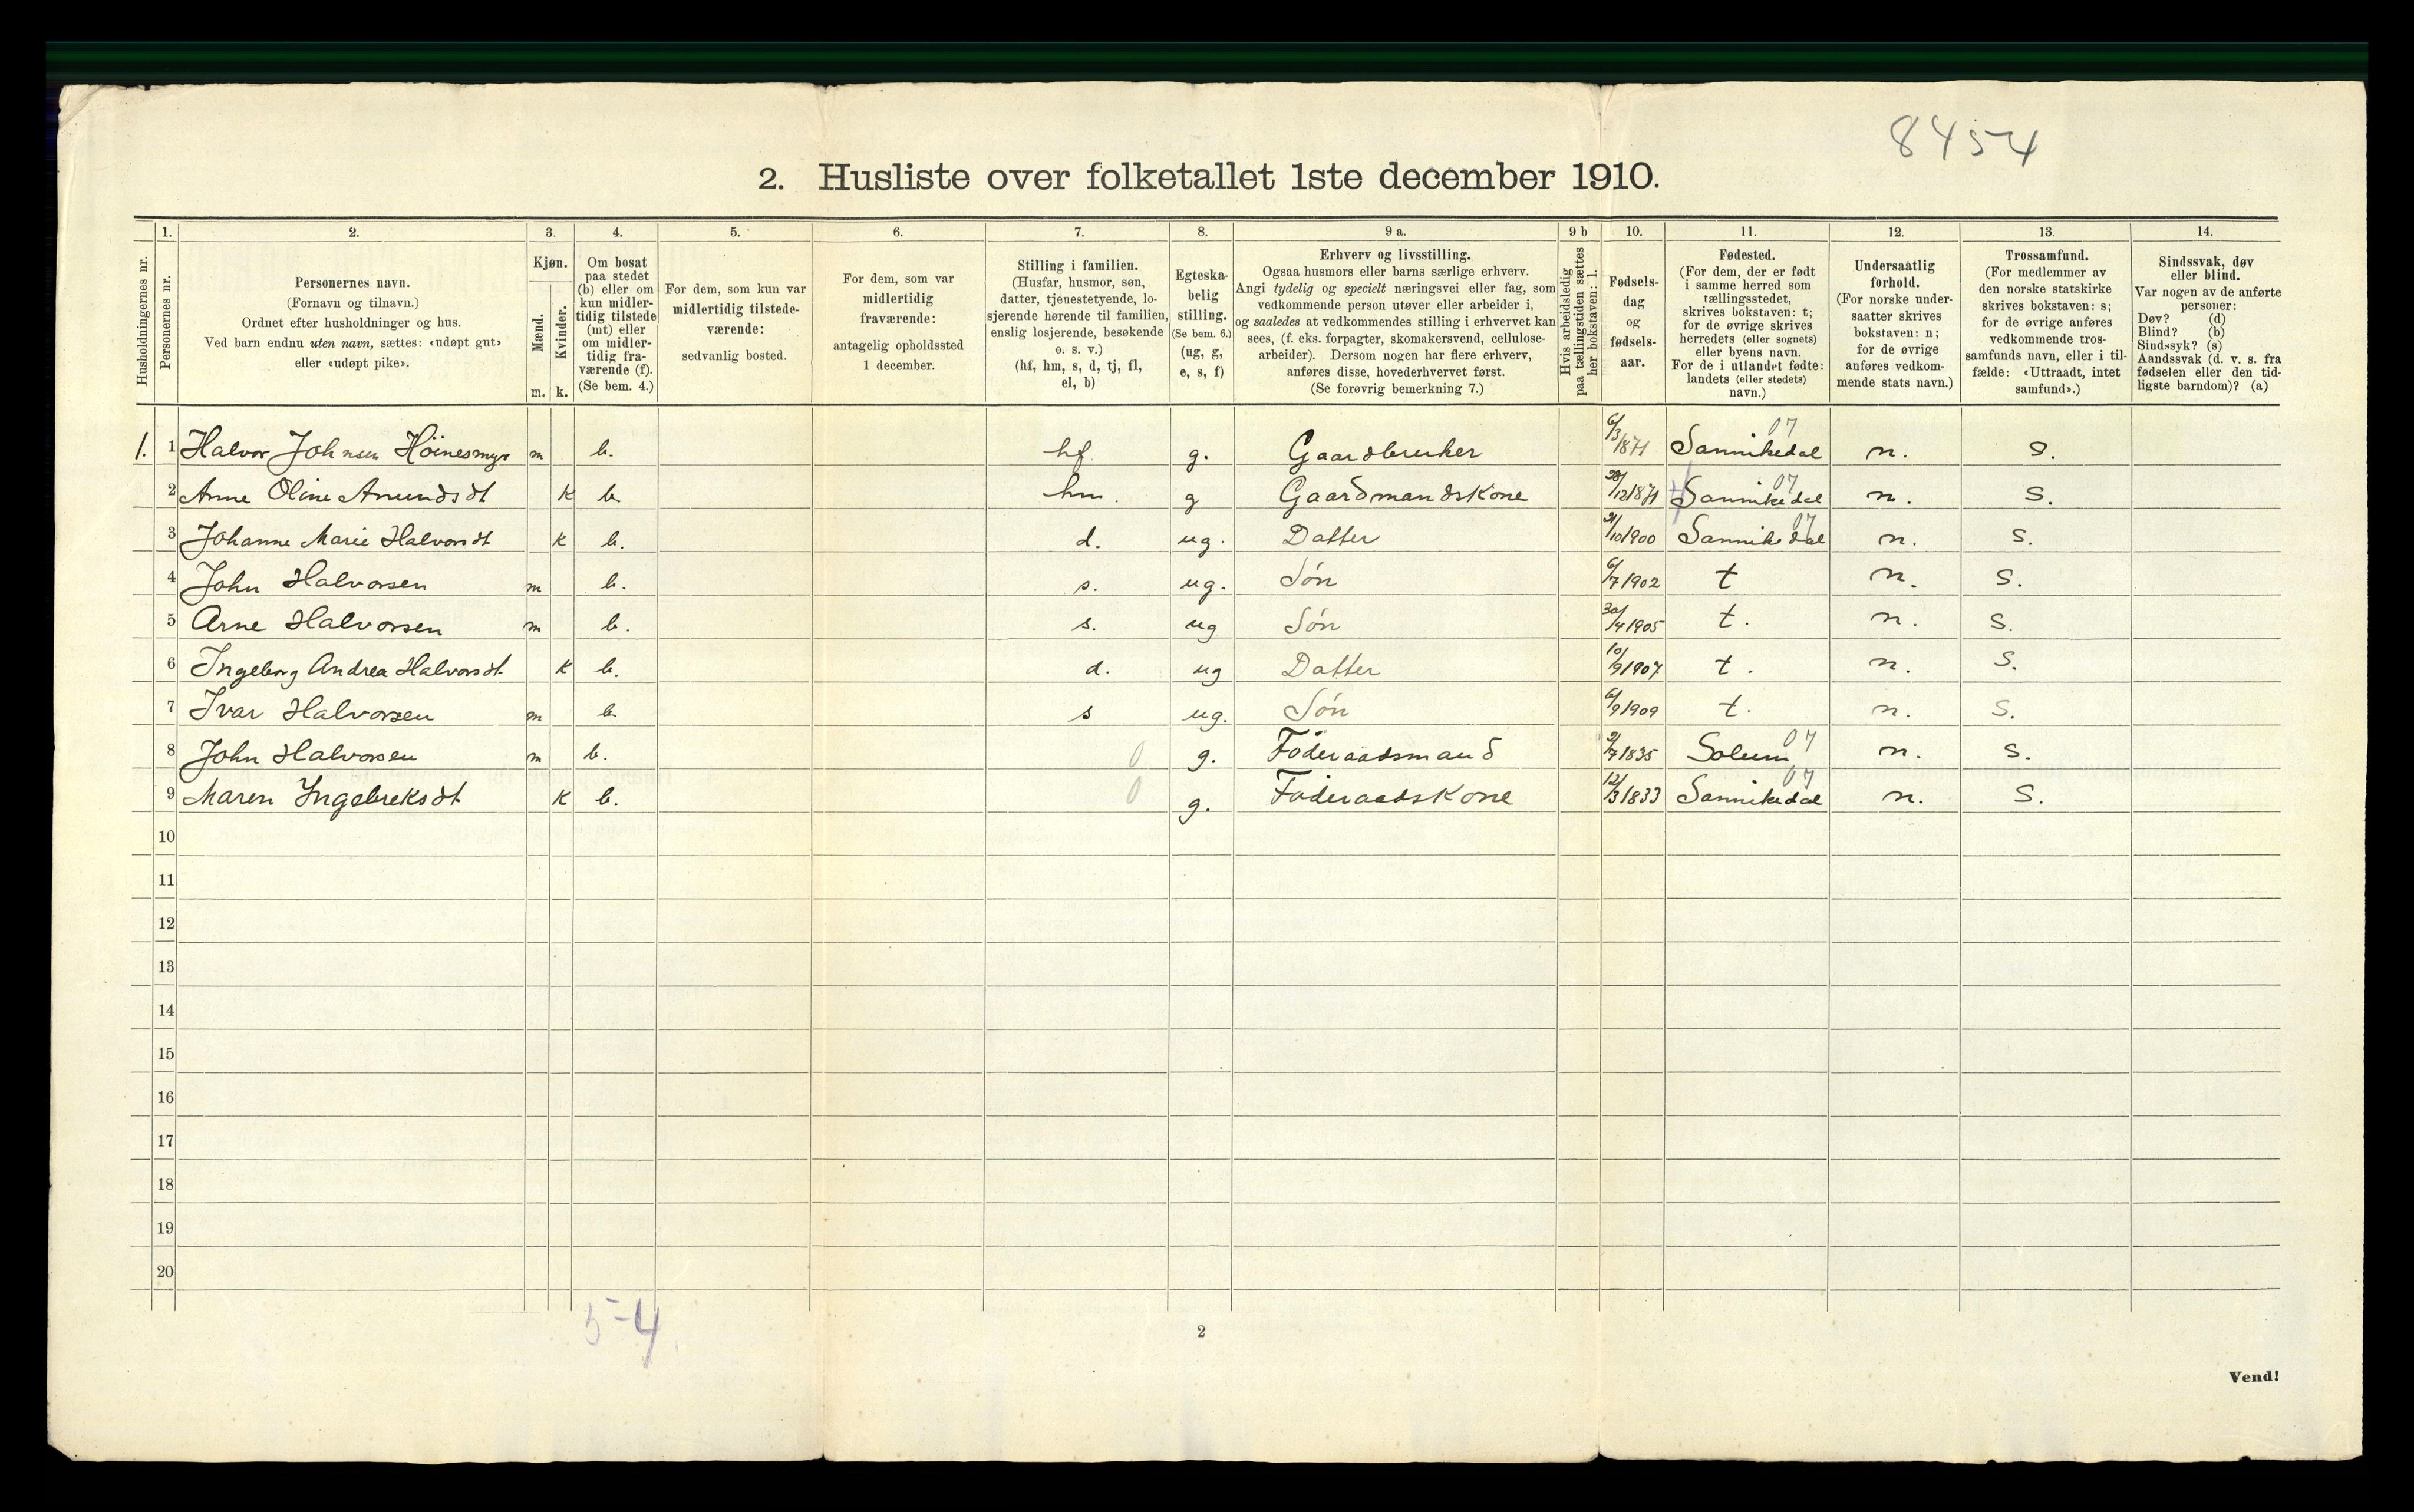 8454
2. Husliste over folketallet 1ste december 1910.
Husholdningernes nr.
1.
Personernes nr.
2.
Personernes navn.
(Fornavn og tilnavn.)
Ordnet efter husholdninger og hus.
Ved barn endnu uten navn, sættes: «udøpt gut»
eller «udøpt pike».
3.
Kjøn.
Mænd.
Kvinder.
m. k.
4.
Om bosat
paa stedet
(b) eller om
kun midler-
tidig tilstede
(mt) eller
om midler-
tidig fra-
værende (f).
(Se bem. 4.)
5.
For dem, som kun var
midlertidig tilstede-
værende:
sedvanlig bosted.
6.
For dem, som var
midlertidig
fraværende:
antagelig opholdssted
1 december.
7.
Stilling i familien.
(Husfar, husmor, søn,
datter, tjenestetyende, lo-
sjerende hørende til familien,
enslig losjerende, besøkende
o. s. v.)
(hf, hm, s, d, tj, fl,
el, b)
8.
Egteska-
belig
stilling.
(Se bem. 6.)
(ug, g,
e, s, f)
9 a.
Erhverv og livsstilling.
Ogsaa husmors eller barns særlige erhverv.
Angi tydelig og specielt næringsvei eller fag, som
vedkommende person utøver eller arbeider i,
og saaledes at vedkommendes stilling i erhvervet kan
sees, (f. eks. forpagter, skomakersvend, cellulose-
arbeider). Dersom nogen har flere erhverv,
anføres disse, hovederhvervet først.
(Se forøvrig bemerkning 7.)
9 b
Hvis arbeidsledig
paa tællingstiden sættes
her bokstaven: l.
10.
Fødsels-
dag
og
fødsels-
aar.
11.
Fødested.
(For dem, der er født
i samme herred som
tællingsstedet,
skrives bokstaven: t;
for de øvrige skrives
herredets (eller sognets)
eller byens navn.
For de i utlandet fødte:
landets (eller stedets)
navn.)
12.
Undersaatlig
forhold.
(For norske under-
saatter skrives
bokstaven: n;
for de øvrige
anføres vedkom-
mende stats navn.)
13.
Trossamfund.
(For medlemmer av
den norske statskirke
skrives bokstaven: s;
for de øvrige anføres
vedkommende tros-
samfunds navn, eller i til-
fælde: «Uttraadt, intet
samfund».)
14.
Sindssvak, døv
eller blind.
Var nogen av de anførte
personer:
Døv? (d)
Blind? (b)
Sindssyk? (s)
Aandssvak (d. v. s. fra
fødselen eller den tid-
ligste barndom)? (a)
1. 1 Halvor Johnsen Höinesmyr m b. hf. g. Gaardbruker 6/3 1871 Sannikedal 07 n. s.
2 Anne Oline Amundsdt k b hm. g Gaardmandskone 28/12 1871 Sannikedal 07 n. s.
3 Johanne Marie Halvorsdt k b. d. ug. Datter 21/10 1900 Sannikedal 07 n. s.
4 John Halvorsen m b. s. ug. Søn 6/7 1902 t n. s.
5 Arne Halvorsen m b. s. ug Søn 30/4 1905 t. n. s.
6 Ingeborg Andrea Halvorsdt. k b. d. ug Datter 10/9 1907 t. n. s.
7 Ivar Halvorsen m b s ug. Søn 6/9 1909 t. n. s.
8 John Halvorsen m b. 0 g. Föderaadsmand 2/7 1835 Solum 07 n. s.
9 Maren Ingebreksdt k b. 0 g. Föderaadskone 12/3 1833 Sannikedal 07 n. s.
10
11
12
13
14
15
16
17
18
19
20
5-4
2
Vend!